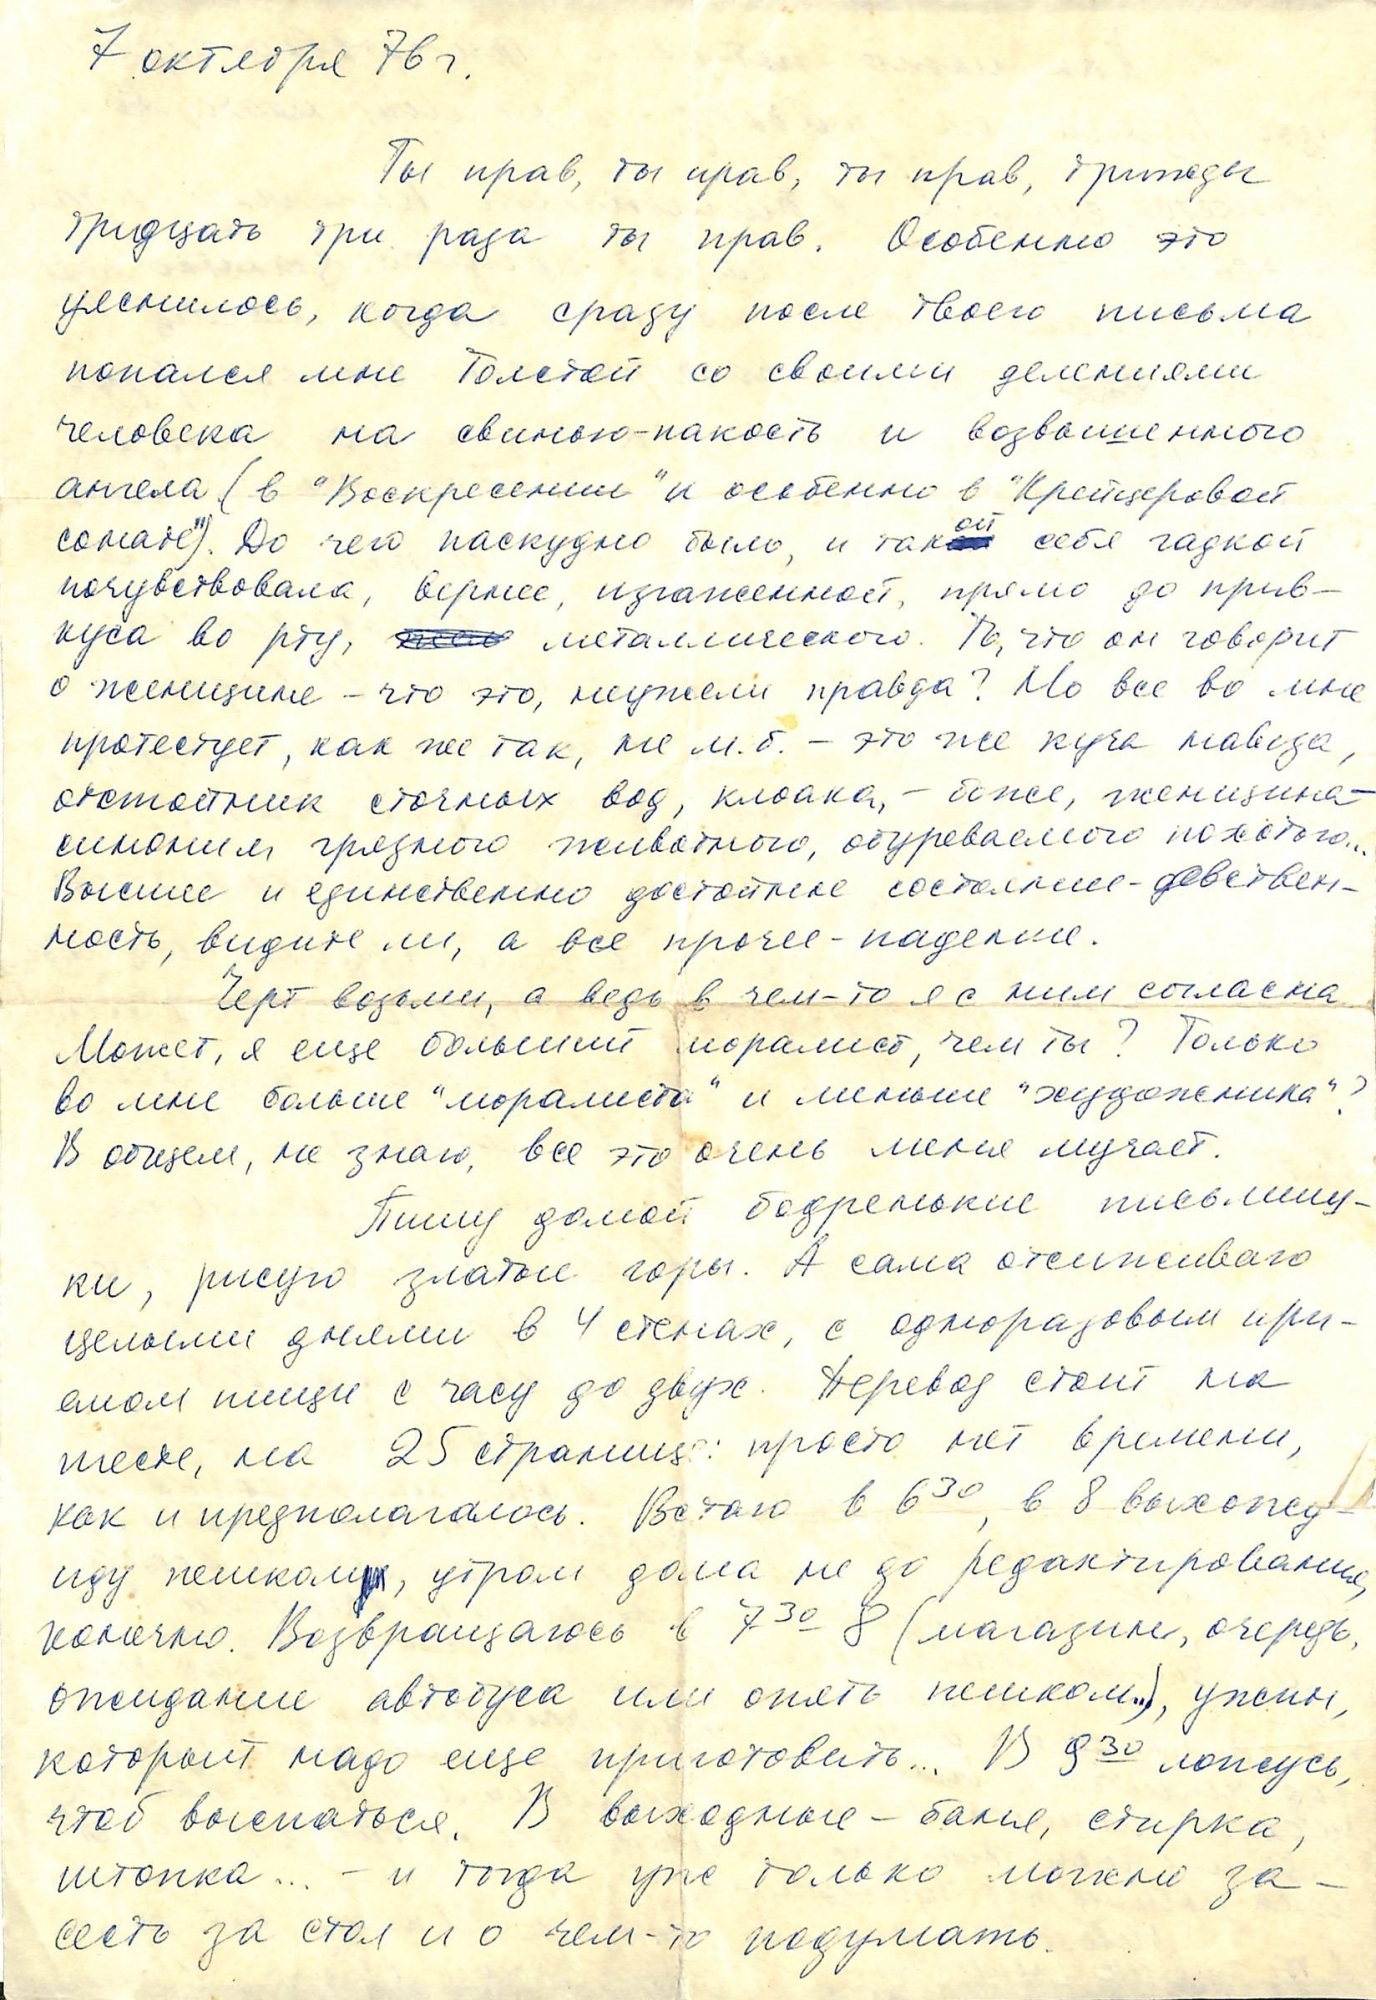 7 октября 76 г.
Ты прав, ты прав, ты прав, трижды
тридцать три раза ты прав. Особенно это
уяснилось, когда сразу после твоего письма
попался мне Толстой со своими делениями
человека на свинью-пакость и возвышенного
ангела (в "Воскресении" и особенно в "Крейцеровой
сонате"). До чего паскудно было, и такой себя гадкой
почувствовала, вернее, изгаженной, прямо до прив-
куса во рту, металлического. То, что он говорит
о женщине – что это, неужели правда? Но все во мне
протестует, как же так, не м.б. – это же куча навоза,
отстойник сточных вод, клоака, – боже, женщина –
синоним грязного животного, обуреваемого похотью...
Высшее и единственно достойное состояние – девствен-
ность, видите ли, а все прочее – падение.
Черт возьми, а ведь в чем-то я с ним согласна
Может, я еще больший моралист, чем ты? Только
во мне больше "моралиста" и меньше "художника"?
В общем, не знаю, все это очень меня мучает.
Пишу домой бодренькие письмишу-
ки, рисую златые горы. А сама отсиживаю
целыми днями в 4 стенах, с одноразовым при-
емом пищи с часу до двух. Перевод стоит на
месте, на 25 странице: просто нет времени,
как и предполагалось. Встаю в 6 30, в 8 выхожу –
иду пешком, утром дома не до редактирования,
конечно. Возвращаюсь в 7 30 8 (магазины, очередь,
ожидание автобуса или опять пешком..), ужин,
который надо еще приготовить... В 9 30 ложусь,
чтоб выспаться. В выходные – баня, стирка,
штопка... – и тогда уже только можно за-
сесть за стол и о чем-то подумать.